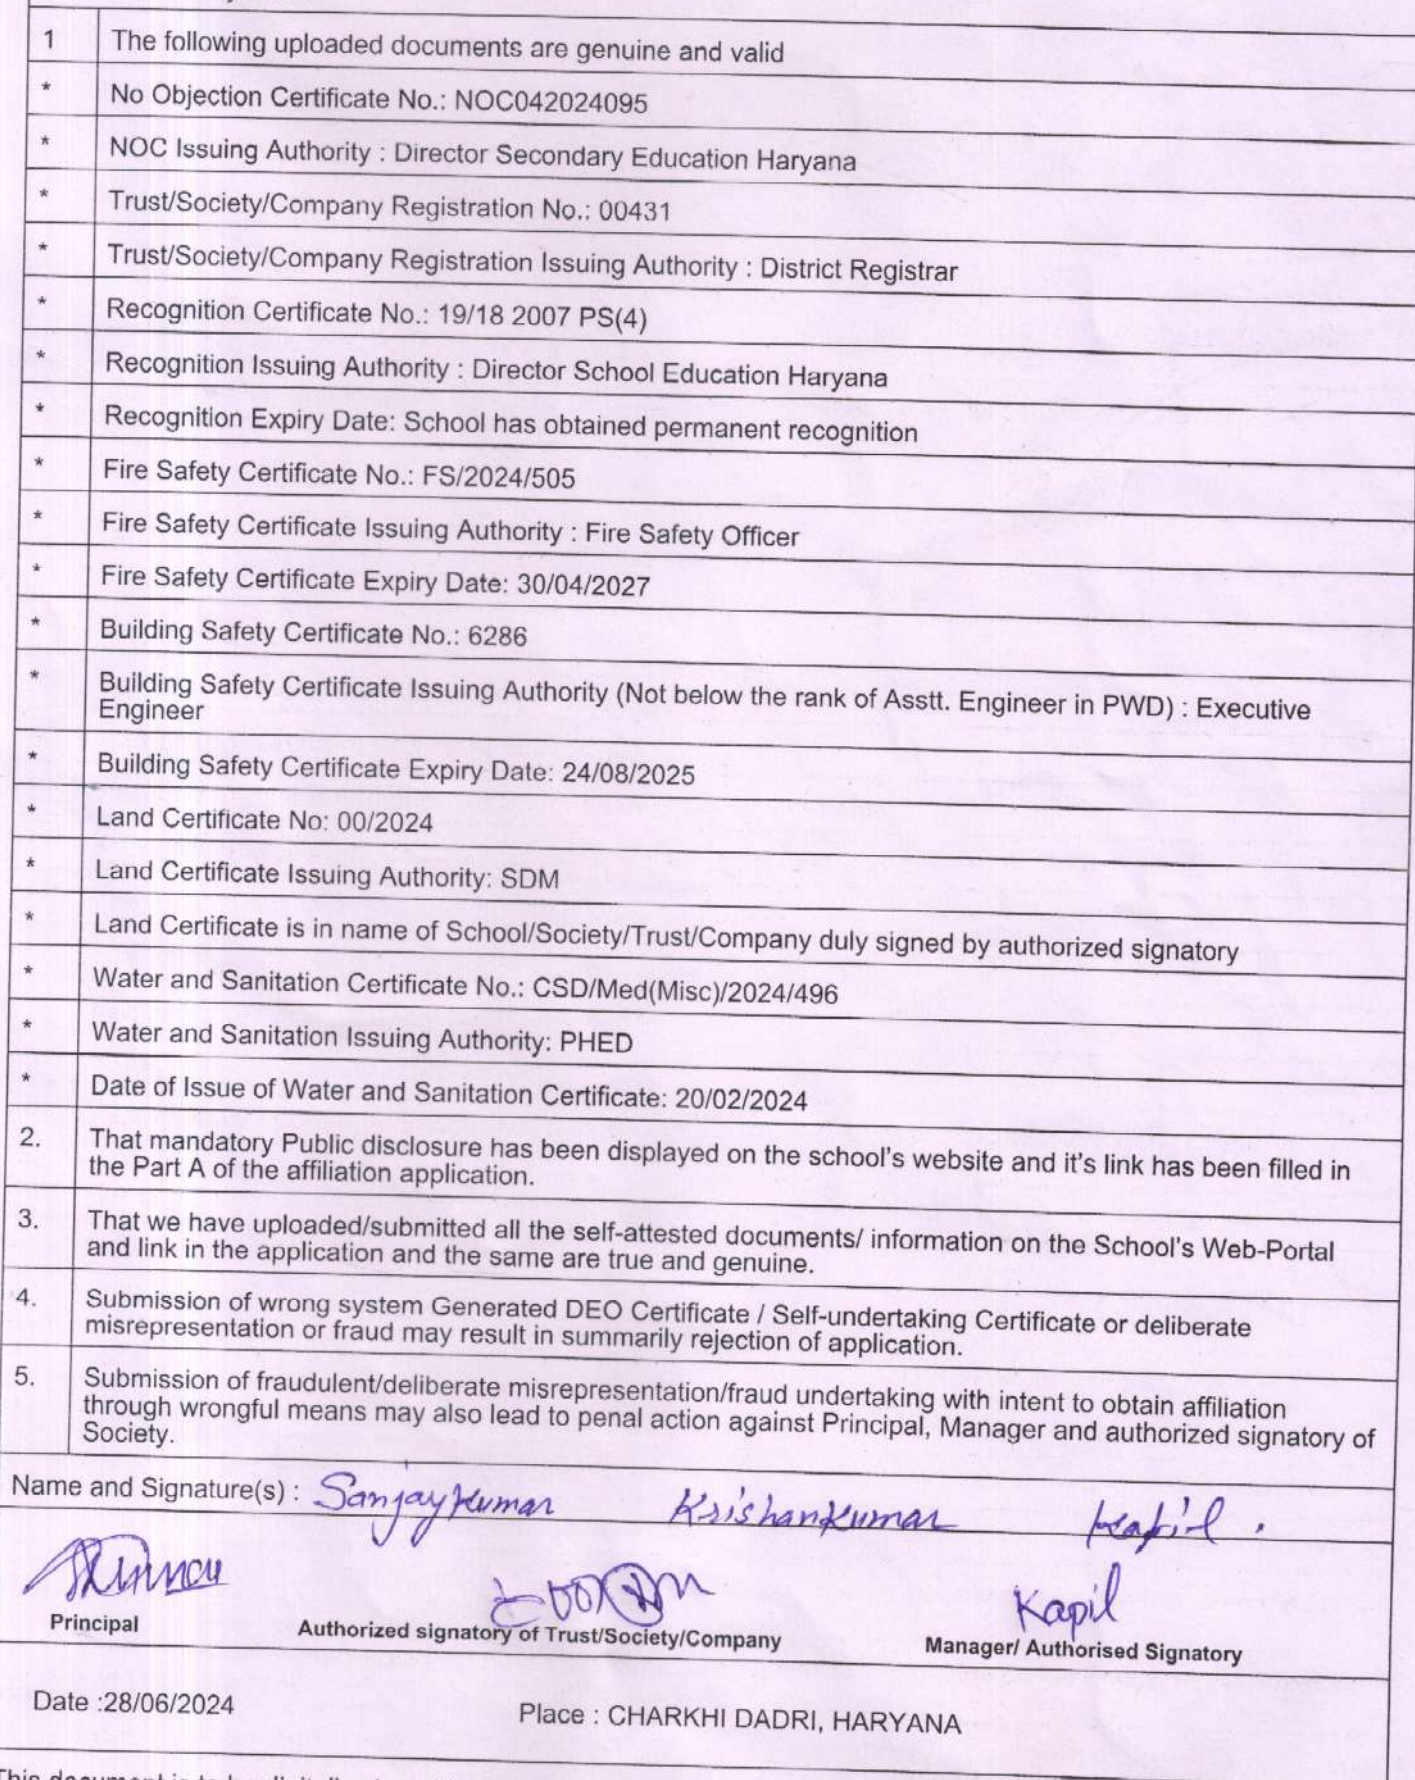 1 The following uploaded documents are genuine and valid
* No Objection Certificate No.: NOC042024095
* NOC Issuing Authority : Director Secondary Education Haryana
* Trust/Society/Company Registration No.: 00431
* Trust/Society/Company Registration Issuing Authority : District Registrar
* Recognition Certificate No.: 19/18 2007 PS(4)
* Recognition Issuing Authority : Director School Education Haryana
* Recognition Expiry Date: School has obtained permanent recognition
* Fire Safety Certificate No.: FS/2024/505
* Fire Safety Certificate Issuing Authority : Fire Safety Officer
* Fire Safety Certificate Expiry Date: 30/04/2027
* Building Safety Certificate No.: 6286
* Building Safety Certificate Issuing Authority (Not below the rank of Asstt. Engineer in PWD) : Executive
Engineer
* Building Safety Certificate Expiry Date: 24/08/2025
* Land Certificate No: 00/2024
* Land Certificate Issuing Authority: SDM
* Land Certificate is in name of School/Society/Trust/Company duly signed by authorized signatory
* Water and Sanitation Certificate No.: CSD/Med(Misc)/2024/496
* Water and Sanitation Issuing Authority: PHED
* Date of Issue of Water and Sanitation Certificate: 20/02/2024
2. That mandatory Public disclosure has been displayed on the school's website and it's link has been filled in
the Part A of the affiliation application.
3. That we have uploaded/submitted all the self-attested documents/ information on the School's Web-Portal
and link in the application and the same are true and genuine.
4. Submission of wrong system Generated DEO Certificate / Self-undertaking Certificate or deliberate
misrepresentation or fraud may result in summarily rejection of application.
5. Submission of fraudulent/deliberate misrepresentation/fraud undertaking with intent to obtain affiliation
through wrongful means may also lead to penal action against Principal, Manager and authorized signatory of
Society.
Name and Signature(s) : Sanjay Kumar Krishan Kumar Kapil .
Kapil
Principal Authorized signatory of Trust/Society/Company Manager/ Authorised Signatory
Date :28/06/2024 Place : CHARKHI DADRI, HARYANA